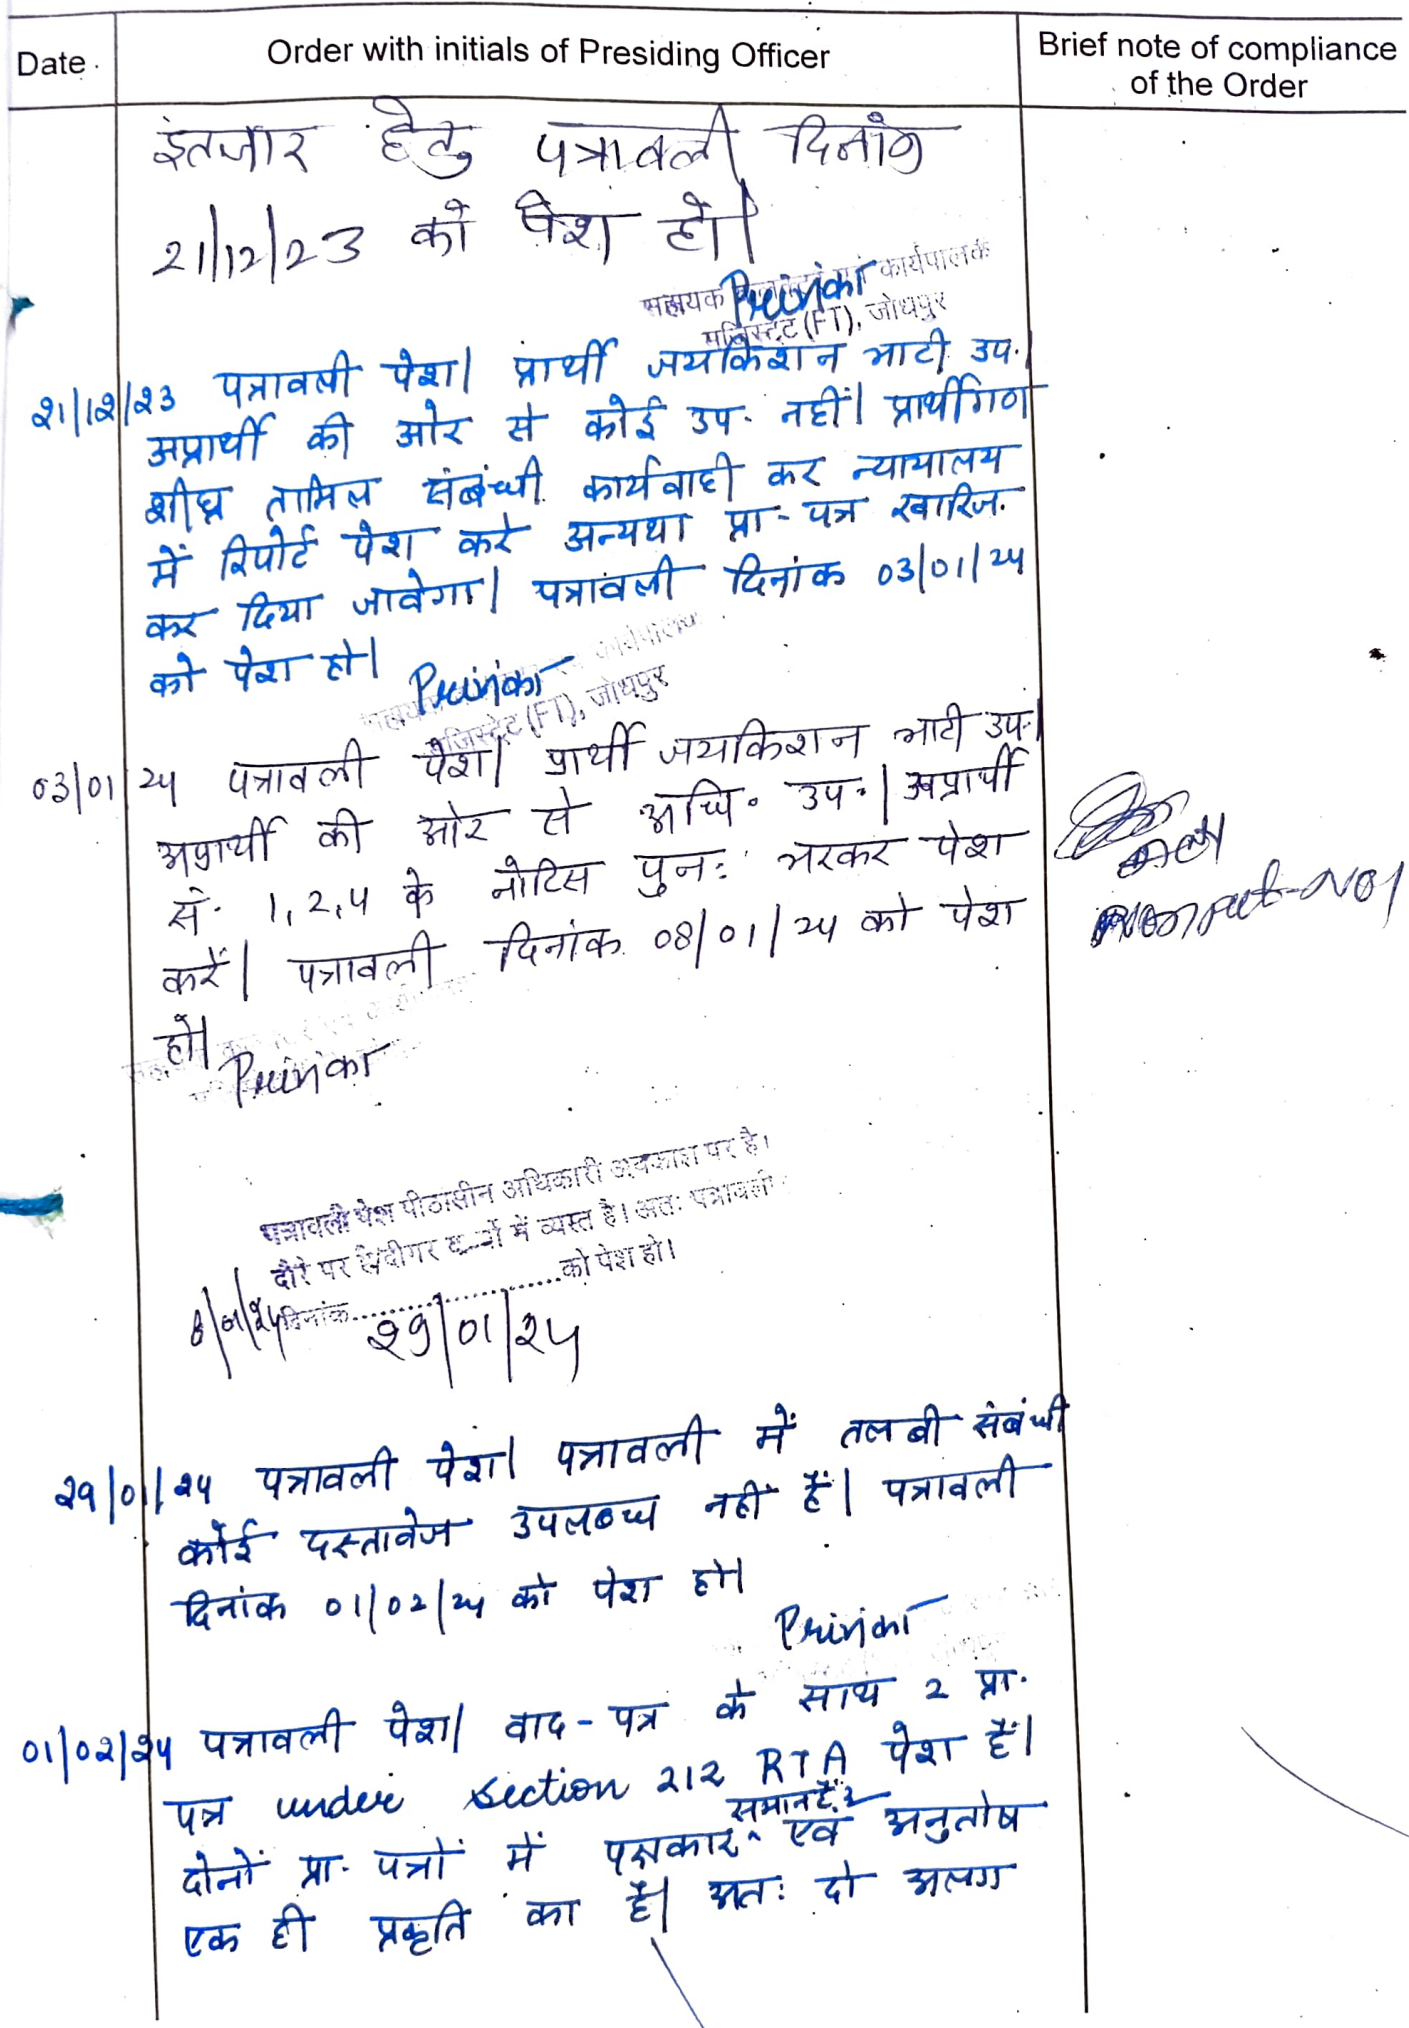 Date
Order with initials of Presiding Officer
Brief note of compliance
of the Order
इंतजार हेतु पत्रावली दिनांक
21/12/23 को पेश हो।
सहायक कार्यपालक
मजिस्ट्रेट (FT), जोधपुर
21/12/23 पत्रावली पेश। प्रार्थी जयकिशन भाटी उप.।
अप्रार्थी की ओर से कोई उप. नहीं। प्रार्थीगण
शीघ्र तामिल संबंधी कार्यवाही कर न्यायालय
में रिपोर्ट पेश करे अन्यथा प्रा-पत्र खारिज.
कर दिया जावेगा। पत्रावली दिनांक 03/01/24
को पेश हो।
मजिस्ट्रेट (FT), जोधपुर
03/01/24 पत्रावली पेश। प्रार्थी जयकिशन भाटी उप.।
अप्रार्थी की ओर से अधि. उप.। अप्रार्थी
सं. 1,2,4 के नोटिस पुन: भरकर पेश
करें। पत्रावली दिनांक 08/01/24 को पेश
हो।
पत्रावली पेश पीठासीन अधिकारी अवकाश पर है।
दौरे पर है/दीगर कार्यो में व्यस्त है। अत: पत्रावली
8/01/24 दिनांक..................को पेश हो।
29/01/24
29/01/24 पत्रावली पेश। पत्रावली में तलबी संबंधी
कोई दस्तावेज उपलब्ध नहीं हैं। पत्रावली
दिनांक 01/02/24 को पेश हो।
01/02/24 पत्रावली पेश। वाद-पत्र के साथ 2 प्रा.
पत्र under section 212 RTA पेश हैं।
दोनों प्रा. पत्रों में पक्षकार समान हैं एवं अनुतोष
एक ही प्रकृति का है। अत: दो अलग